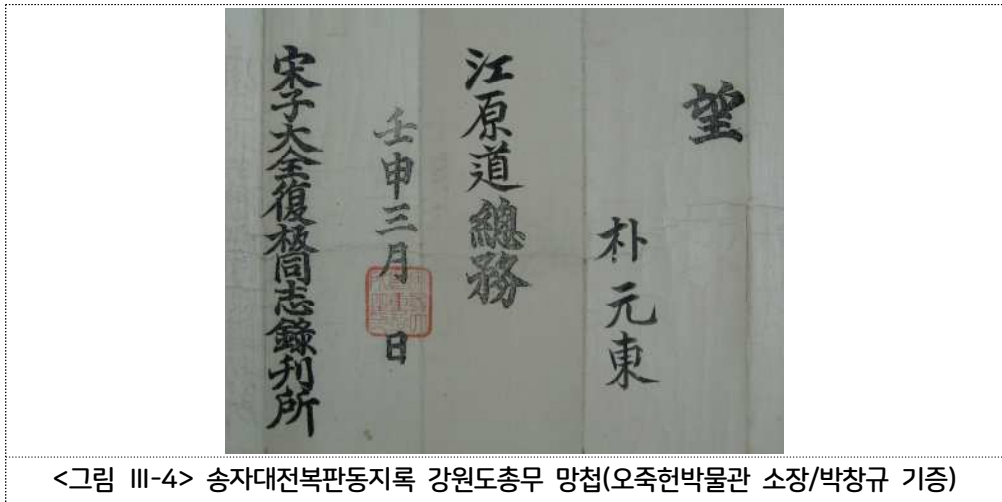 望
朴元東
江原道總務
壬申三月 日
宋子大全復板同志錄刊所
<그림 Ⅲ-4> 송자대전복판동지록 강원도총무 망첩(오죽헌박물관 소장/박창규 기증)